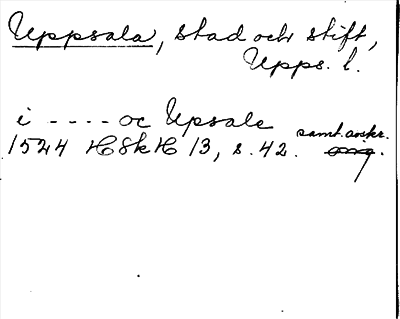 Uppsala, stad och stift,
Upps. l.
i ---- oc Upsale
samt. avskr.
1524 HSkH 13, s. 42. orig.